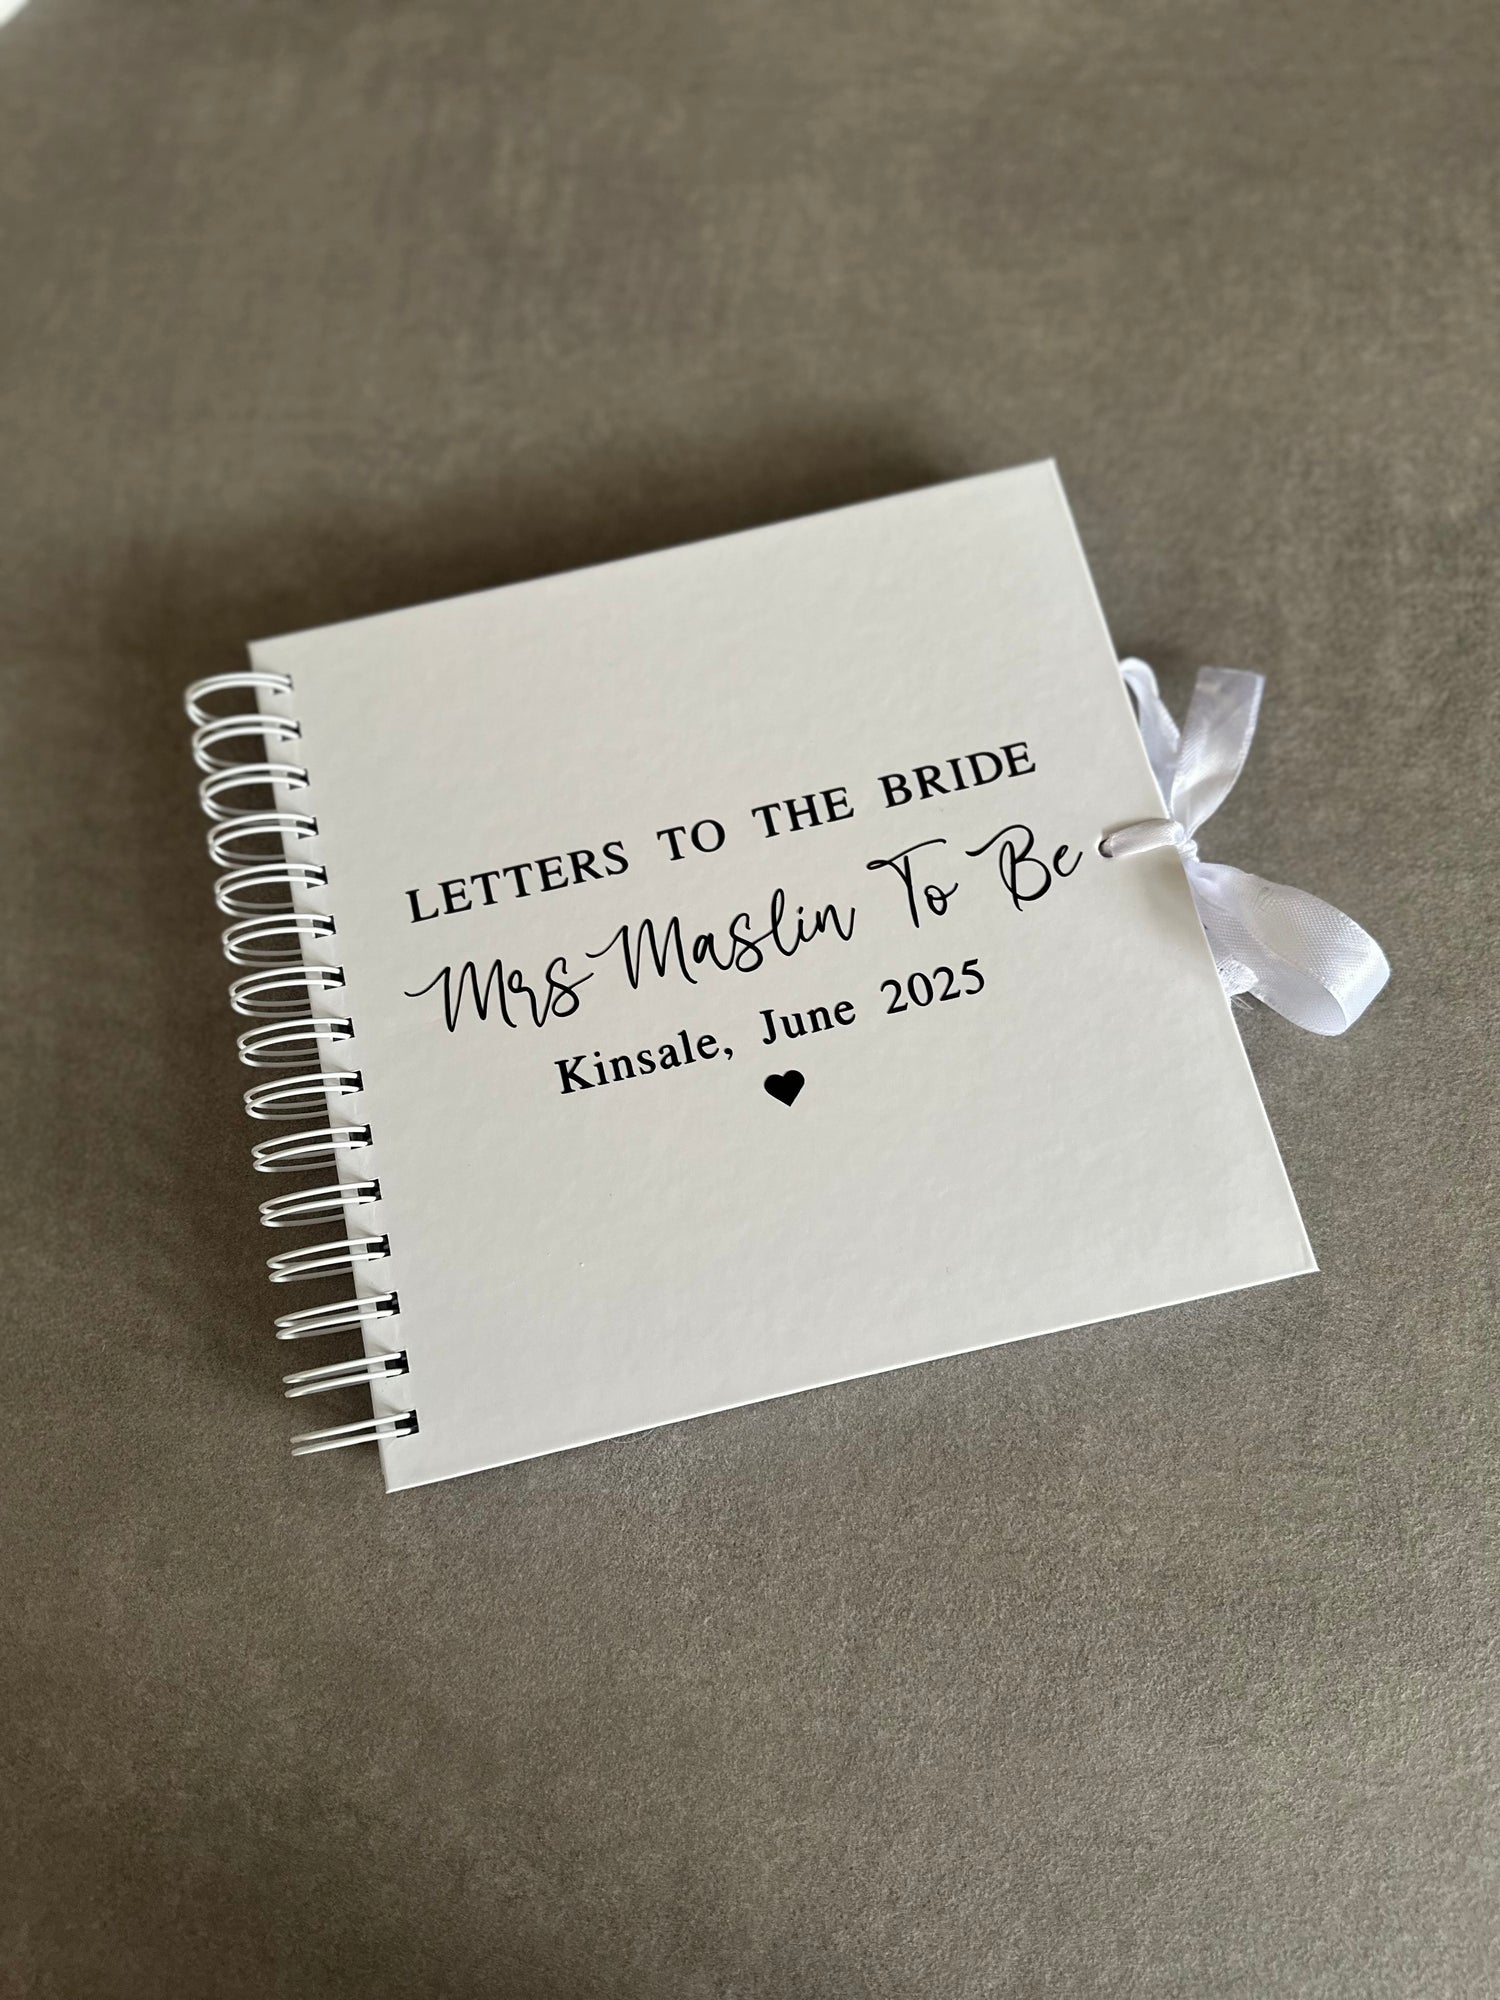 LETTERS TO THE BRIDE
Mrs Maslin To Be
Kinsale, June 2025